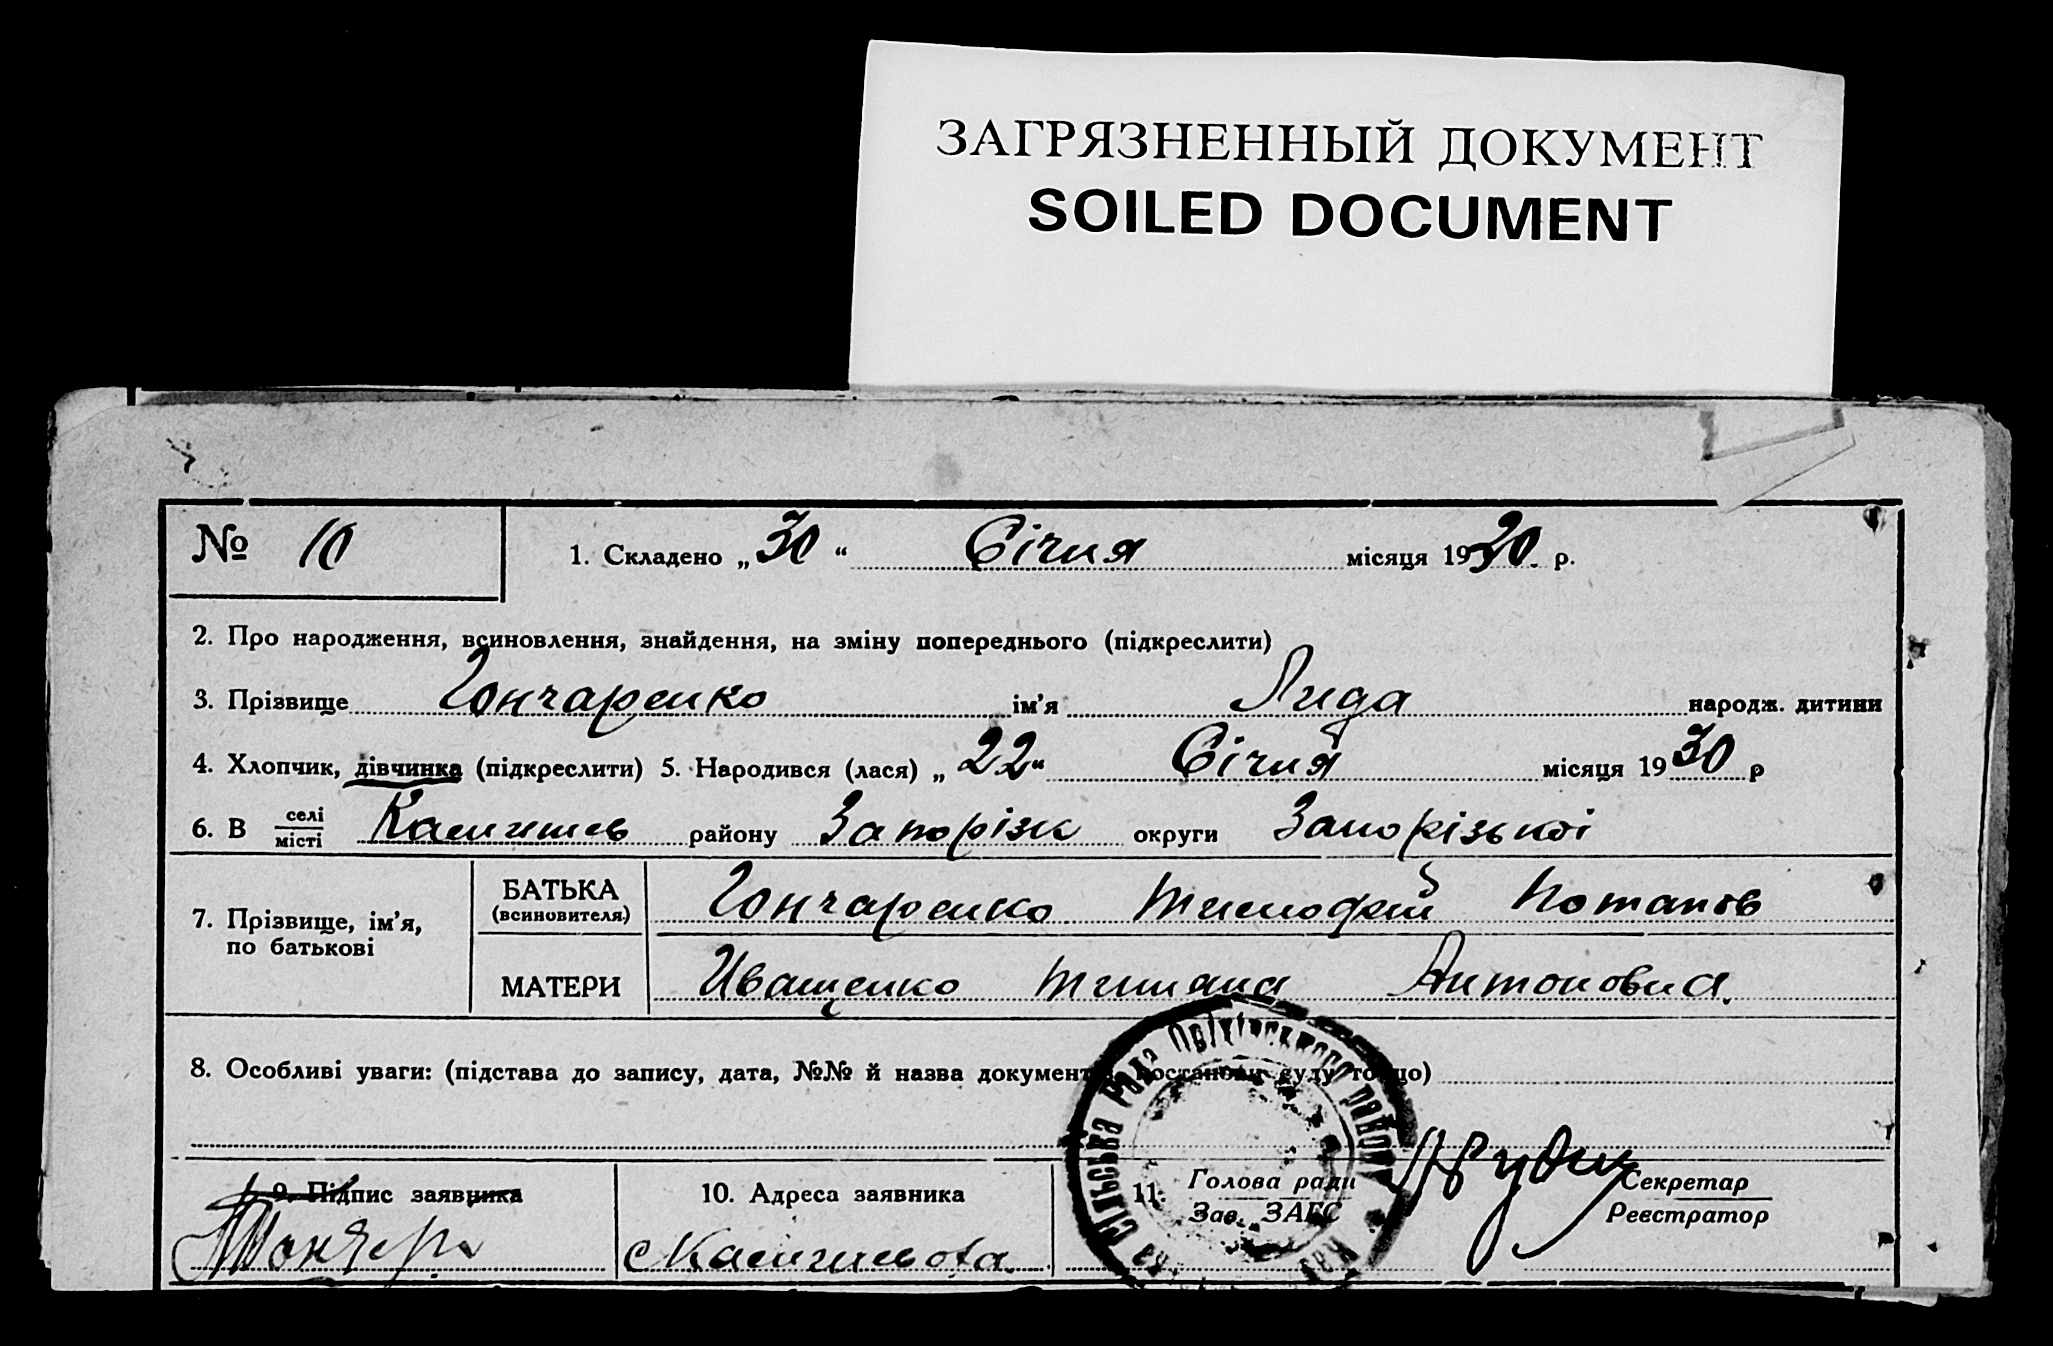 ЗАГРЯЗНЕННЫЙ ДОКУМЕНТ
SOILED DOCUMENT
№ 10
1. Складено „30“ Січня місяця 1930 р.
2. Про народження, всиновлення, знайдення, на зміну попереднього (підкреслити)
3. Прізвище Гончаренко ім’я Лида народж. дитини
4. Хлопчик, дівчинка (підкреслити) 5. Народився (лася) „22“ Січня місяця 1930 р
6. В селі місті району Запорізьк округи Запорізької
7. Прізвище, ім’я, по батькові
БАТЬКА (всиновителя) Гончаренко Тимофей Потапов
МАТЕРИ Иващенко Татяна Антоновна.
8. Особливі уваги: (підстава до запису, дата, №№ й назва документа, постанови суду тощо)
Сільська Рада Оріхівського району
9. Підпис заявника
10. Адреса заявника
11. Голова ради
Зав. ЗАГС
Секретар
Реєстратор